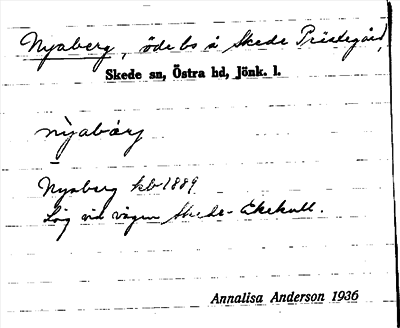 Nyaberg, öde bs å Skede Prästegård,
Skede sn, Östra hd, Jönk. l.
nỳabärj
Nyaberg kb 1889
Låg vid vägen Skede - Ekekull.
Annalisa Anderson 1936